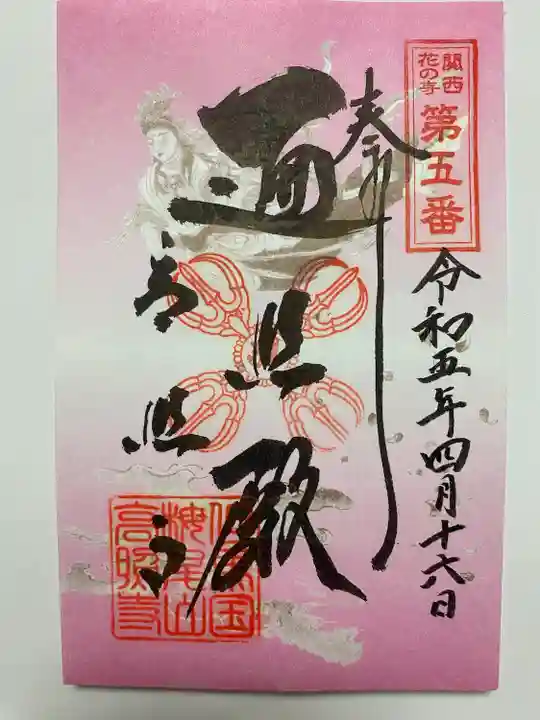 関西
花の寺
第五番
奉拝
令和五年四月十六日
遍照殿
高照寺
但馬国
尾山
高照寺